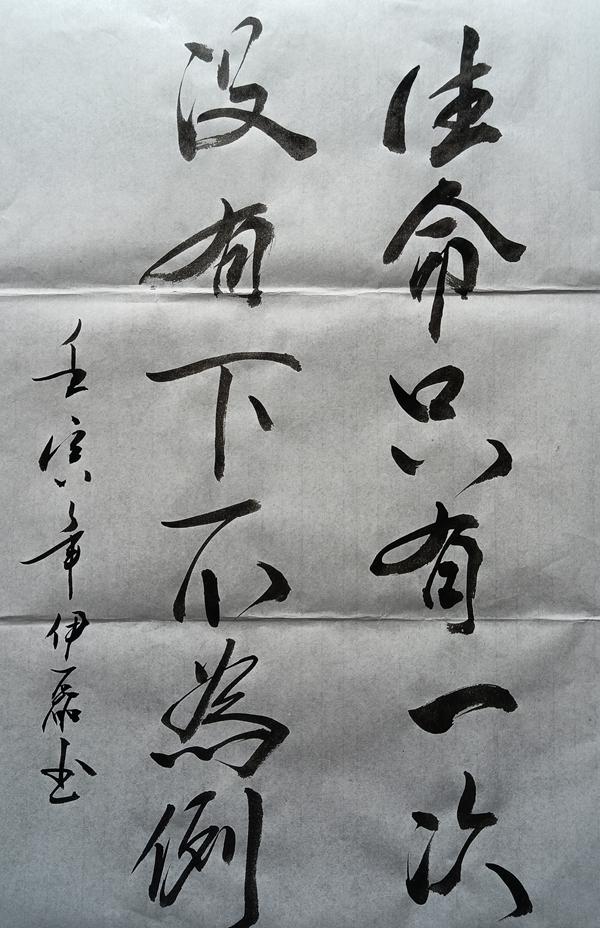 生命只有一次
没有下不為例
壬寅年伊磊书